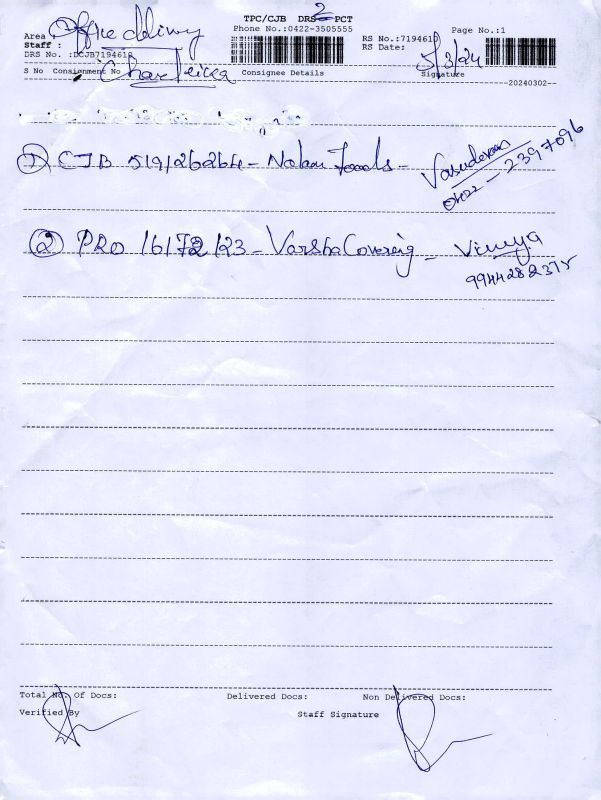 TPC/CJB DRS 2 PCT
Office delivery
Phone No.:0422-3505555
Page No.:1
Area
RS No.:7194610
Staff :
RS Date: 5/3/24
DRS No. :DCJB7194610
S No Consignment No Consignee Details Signature
--20240302--
① CJB 519126264 - Foods - Vasudevan
0422 - 2397096
② PRO 16172123 - Varsha Covering - Vinuya
9944282375
Total No. Of Docs: Delivered Docs: Non Delivered Docs:
Verified By Staff Signature